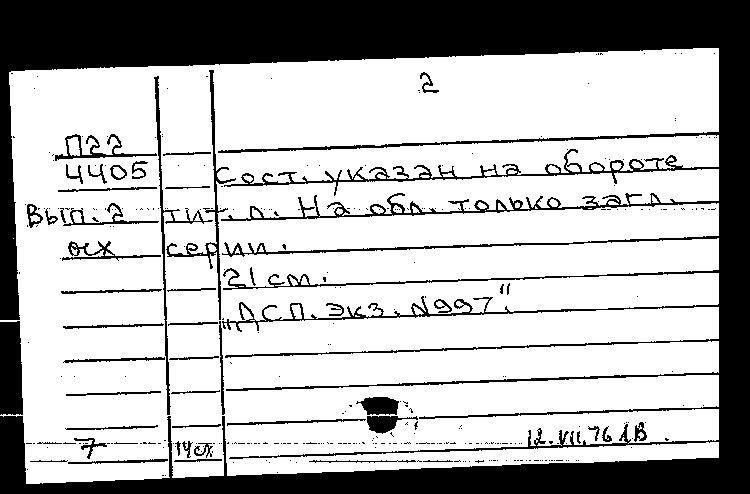 2
П22
4405 Сост. указан на обороте
Вып. 2 тит. л. На обл. только загл.
осх серии.
21 см.
„ДСП. Экз. №997".
7 14сх 12.VII.76 ЛВ.